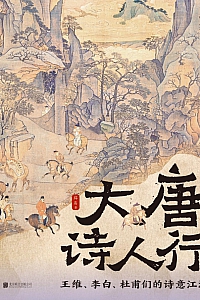 大唐
诗人行
王维、李白、杜甫们的诗意江